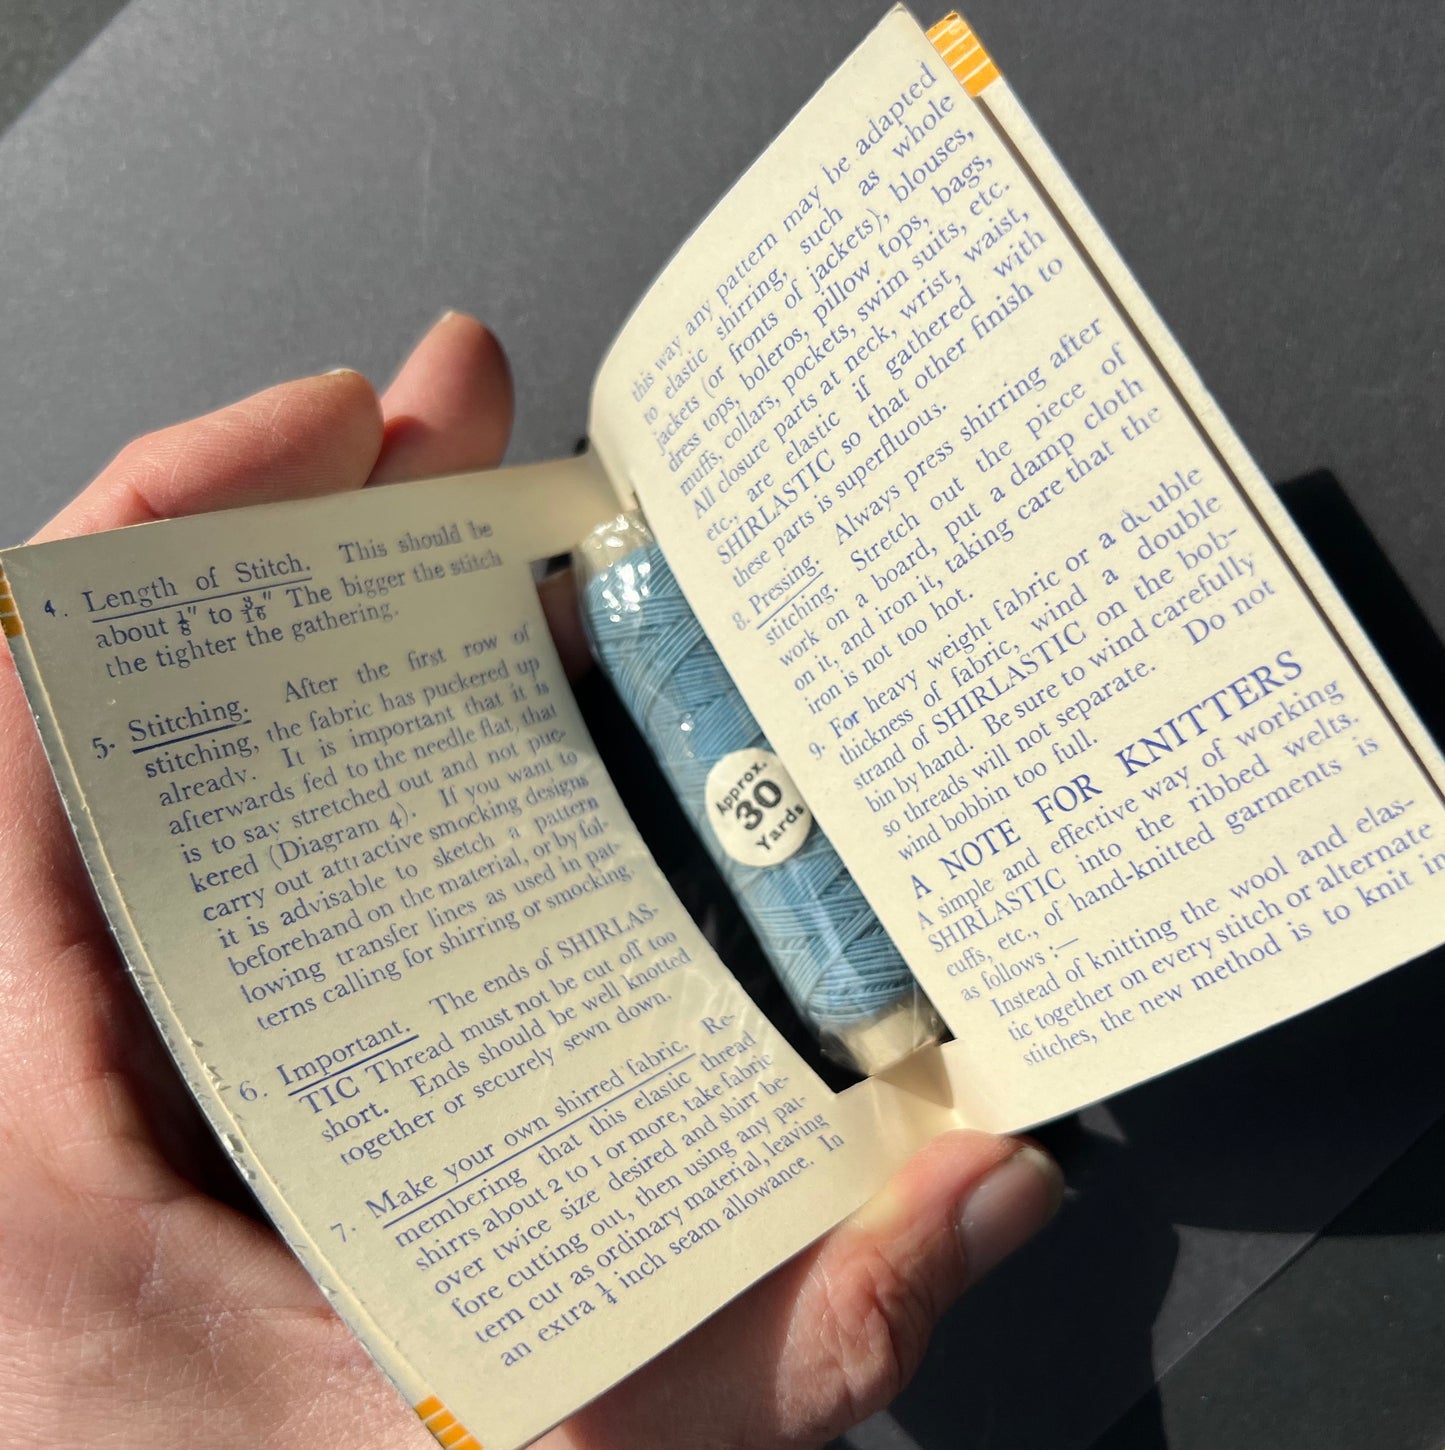 4. Length of Stitch. This should be
about 1/8" to 3/16" The bigger the stitch
the tighter the gathering.
5. Stitching. After the first row of
stitching, the fabric has puckered up
already. It is important that it is
afterwards fed to the needle flat, that
is to say stretched out and not puc-
kered (Diagram 4). If you want to
carry out attractive smocking designs
it is advisable to sketch a pattern
beforehand on the material, or by fol-
lowing transfer lines as used in pat-
terns calling for shirring or smocking.
6. Important. The ends of SHIRLAS-
TIC Thread must not be cut off too
short. Ends should be well knotted
together or securely sewn down.
7. Make your own shirred fabric. Re-
membering that this elastic thread
shirrs about 2 to 1 or more, take fabric
over twice size desired and shirr be-
fore cutting out, then using any pat-
tern cut as ordinary material, leaving
an extra 1/4 inch seam allowance. In
Approx.
30
Yards
this way any pattern may be adapted
to elastic shirring, such as whole
jackets (or fronts of jackets), blouses,
dress tops, boleros, pillow tops, bags,
muffs, collars, pockets, swim suits, etc.
All closure parts at neck, wrist, waist,
etc., are elastic if gathered with
SHIRLASTIC so that other finish to
these parts is superfluous.
8. Pressing. Always press shirring after
stitching. Stretch out the piece of
work on a board, put a damp cloth
on it, and iron it, taking care that the
iron is not too hot.
9. For heavy weight fabric or a double
thickness of fabric, wind a double
strand of SHIRLASTIC on the bob-
bin by hand. Be sure to wind carefully
so threads will not separate. Do not
wind bobbin too full.
A NOTE FOR KNITTERS
A simple and effective way of working
SHIRLASTIC into the ribbed welts,
cuffs, etc., of hand-knitted garments is
as follows :—
Instead of knitting the wool and elas-
tic together on every stitch or alternate
stitches, the new method is to knit in